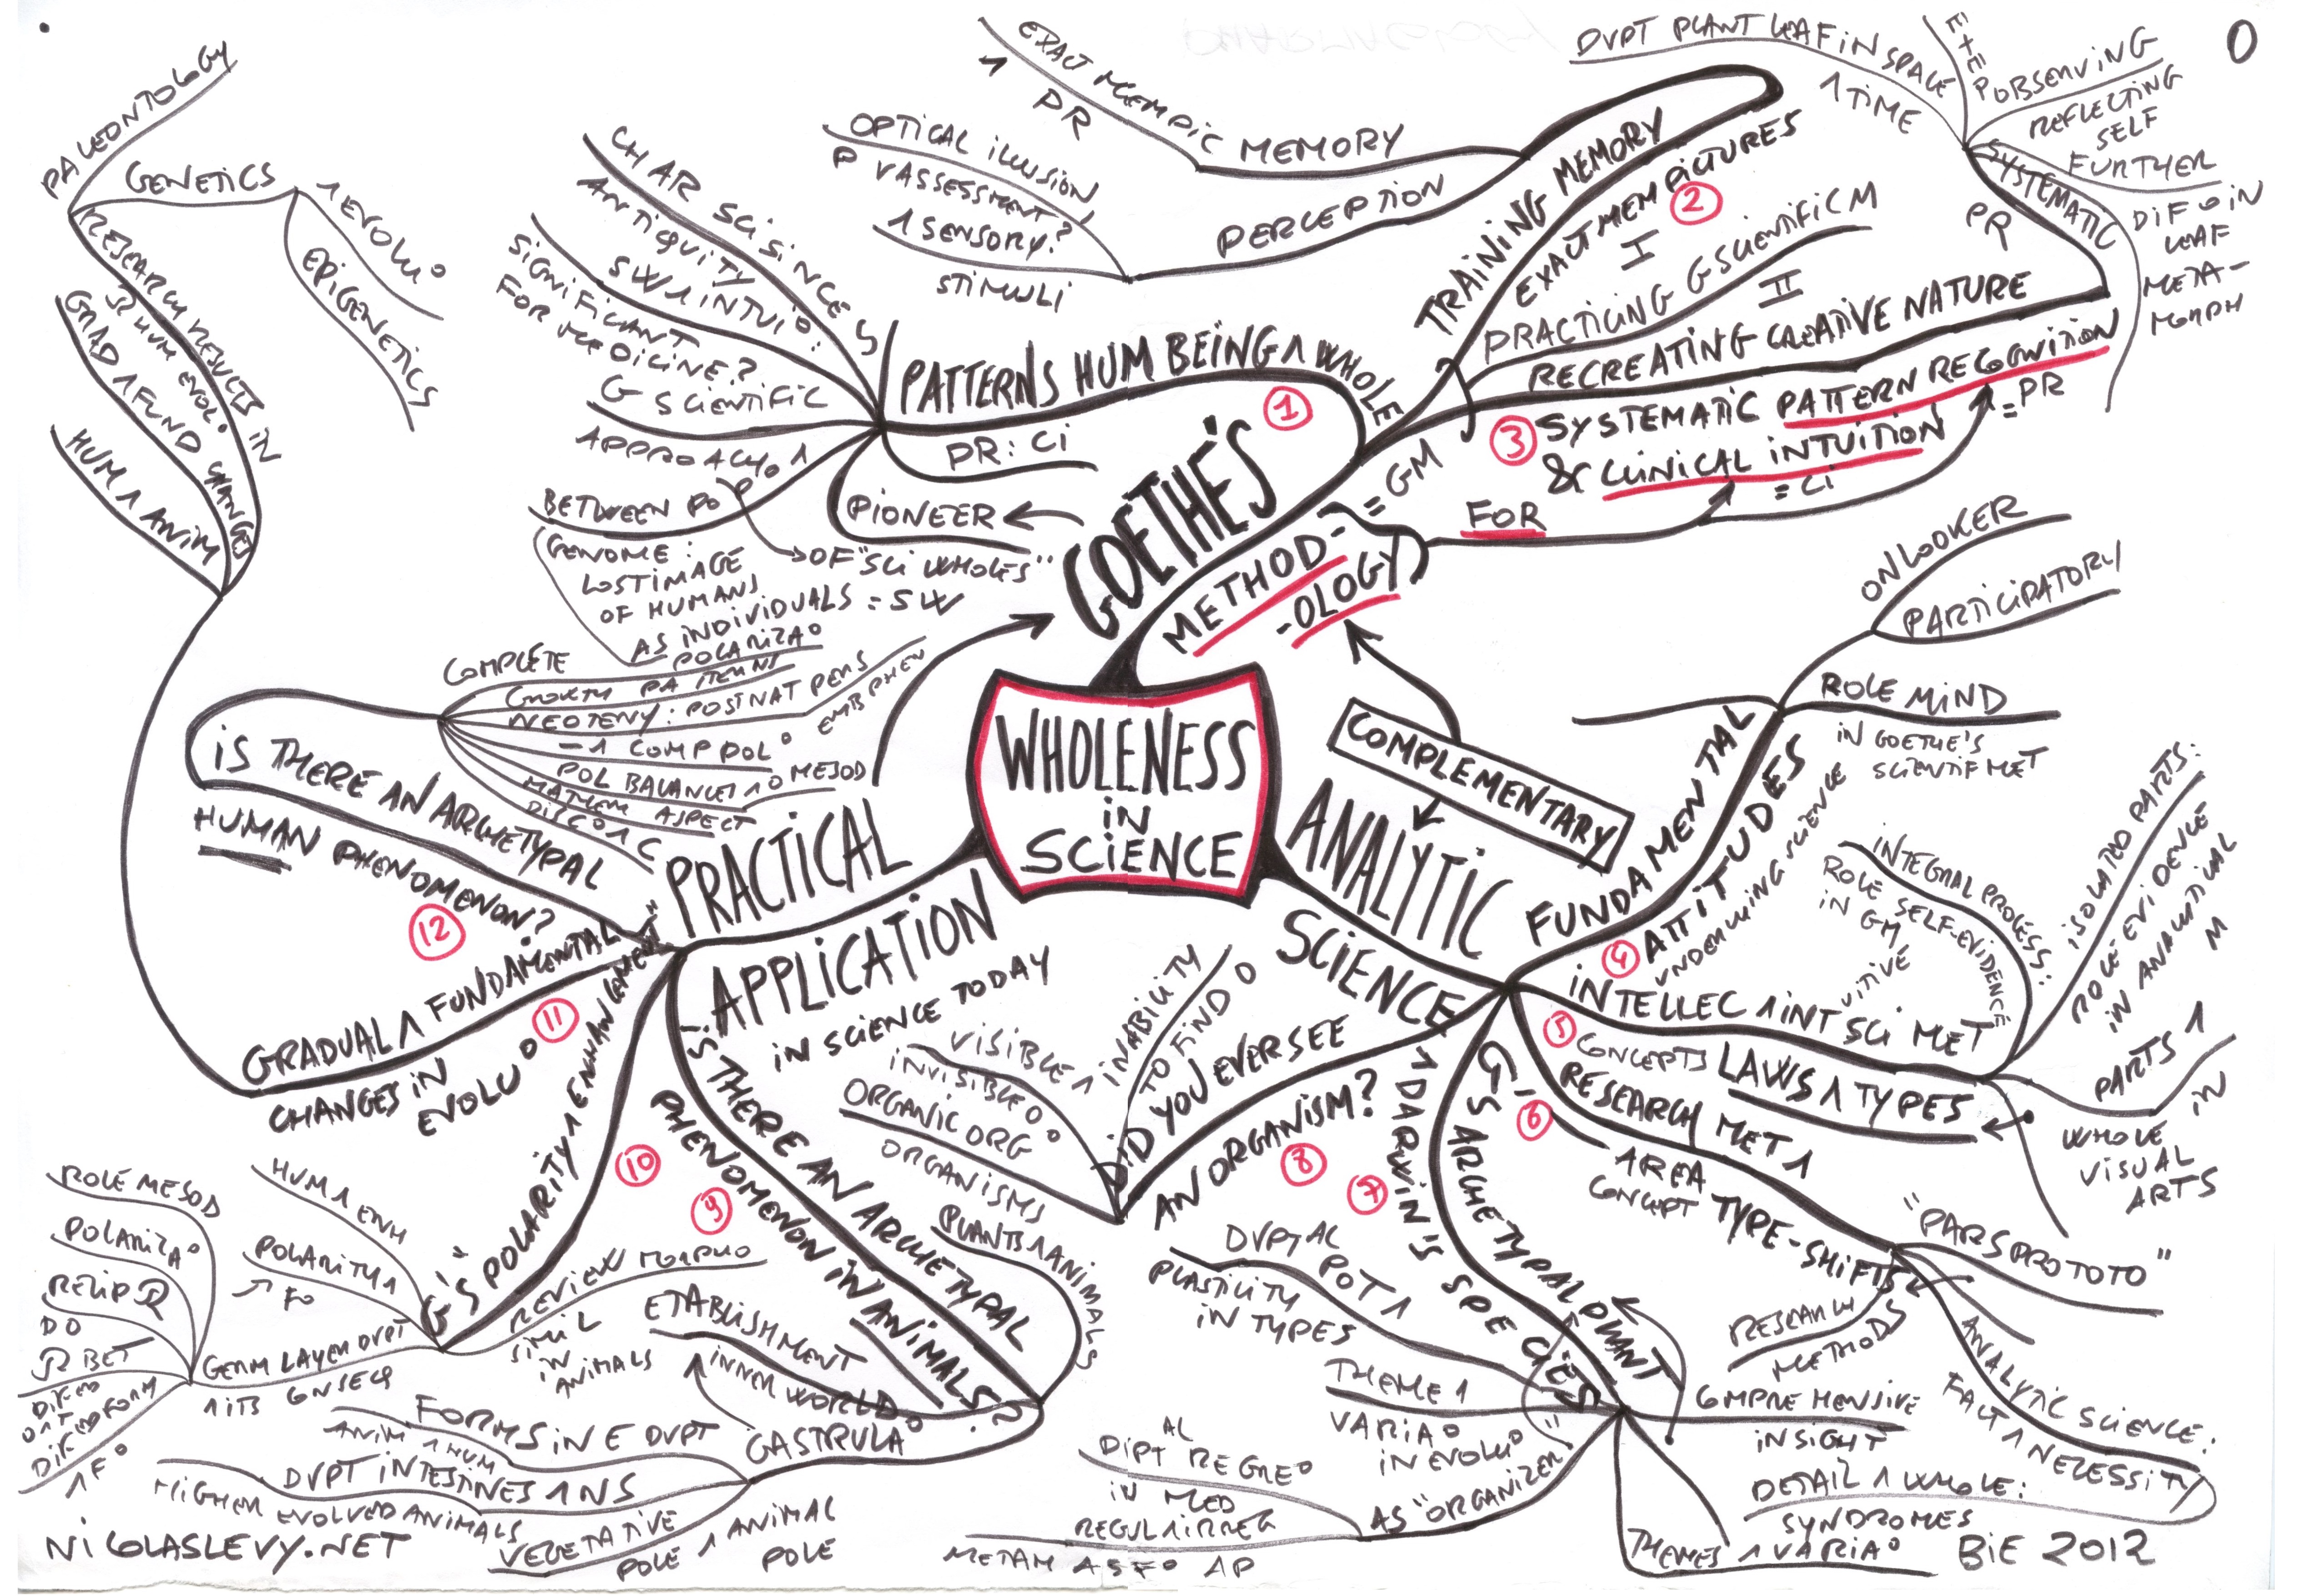 WHOLENESS
IN
SCIENCE
GOETHE'S
METHOD-
-OLOGY
= GM
FOR
COMPLEMENTARY
1
PATTERNS HUM BEING 1 WHOLE
CHAR SCI SINCE
ANTIQUITY
SW 1 INTUI°:
SIGNIFICANT
FOR MEDICINE?
G SCIENTIFIC
APPROACH° 1
BETWEEN PO P°
GENOME:
LOST IMAGE
OF HUMANS
AS INDIVIDUALS = SW
PR: CI
PIONEER
OF "SCI WHOLES"
TRAINING MEMORY
EXACT MEM PICTURES
2
I
MEMORY
EXACT MEM PIC
1 PR
PERCEPTION
OPTICAL ILLUSION
P V ASSESSMENT
1 SENSORY?
STIMULI
PRACTICING G SCIENTIFIC M
II
RECREATING CREATIVE NATURE
3
SYSTEMATIC PATTERN RECOGNITION
= PR
& CLINICAL INTUITION
= CI
DVPT PLANT LEAF IN SPACE
1 TIME
E+E
P OBSERVING
REFLECTING
SELF
FURTHER
SYSTEMATIC
PR
DIF° IN
LEAF
META-
MORPH
O
ANALYTIC
SCIENCE
FUNDAMENTAL
4
ATTITUDES
UNDERLYING SCIENCE
ONLOOKER
PARTICIPATORY
ROLE MIND
IN GOETHE'S
SCIENTIF MET
INTELLEC 1 INTUITIVE SCI MET
INTEGRAL PROCESS:
ROLE SELF-EVIDENCE
IN GM
ISOLATED PARTS:
ROLE EVIDENCE
IN ANALYTICAL
M
5
CONCEPTS LAWS 1 TYPES
PARTS 1
WHOLE IN
VISUAL
ARTS
6
RESEARCH MET 1
AREA
CONCEPT TYPE-SHIFTS
"PARS PRO TOTO"
RESEARCH
METHODS
ANALYTIC SCIENCE:
FACT 1 NECESSITY
G'S ARCHETYPAL PLANT
7
1 DARWIN'S SPECIES
COMPREHENSIVE
INSIGHT
DETAIL 1 WHOLE:
SYNDROMES
THEMES 1 VARIA°
DVPTAL
POT 1
PLASTICITY
IN TYPES
THEME 1
VARIA°
IN EVOLU°
AS "ORGANIZER"
DIPTAL REGRE°
IN MED
REGUL 1 IRREG
METAM AS F° AP
8
DID YOU EVER SEE
AN ORGANISM?
INABILITY
TO FIND O
VISIBLE 1
INVISIBLE O°
ORGANIC ORG
ORGANISMS
PRACTICAL
APPLICATION
IN SCIENCE TODAY
9
IS THERE AN ARCHETYPAL
PHENOMENON IN ANIMALS?
PLANTS 1 ANIMALS
ETABLISHMENT
INNER WORLD°
GASTRULA°
FORMS IN E DVPT
ANIM 1 HUM
DVPT INTESTINES 1 NS
HIGHER EVOLVED ANIMALS
VEGETATIVE
POLE
1 ANIMAL
POLE
10
G'S "POLARITY 1 ENHANCEMENT"
REVIEW MORPHO
SIMIL
IN
ANIMALS
HUM 1 ENH
POLARITY 1
F°
GERM LAYER DVPT
1 ITS CONSEQ
ROLE MESOD
POLARIZA°
RECIP R
DO
R BET
DIF FORM
1 F°
11
GRADUAL 1 FUNDAMENTAL
CHANGES IN
EVOLU°
PALEONTOLOGY
GENETICS
1 EVOLU°
EPIGENETICS
RESEARCH RESULTS IN
R HUM EVOL°
GRAD 1 FUND CHANGES
HUM 1 ANIM
12
IS THERE AN ARCHETYPAL
HUMAN PHENOMENON?
COMPLETE
POLARIZA°
GROWTH PATTERNS
NEOTENY: POSTNAT PERS
EMB PHEN
-1 COMP POL°
POL BALANCE 1° MESOD
MATHEM ASPECT
DISC° 1 C
NICOLASLEVY.NET
BIE 2012